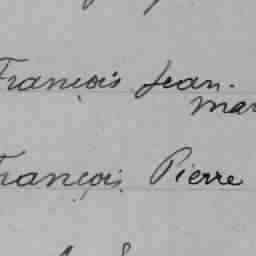 François Jean.
François Pierre